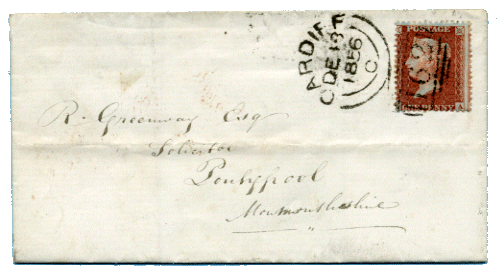 CARDIFF
DE 18
1856
C
POSTAGE
162
R. Greenway Esq
Solicitor
Pontypool
Monmouthshire